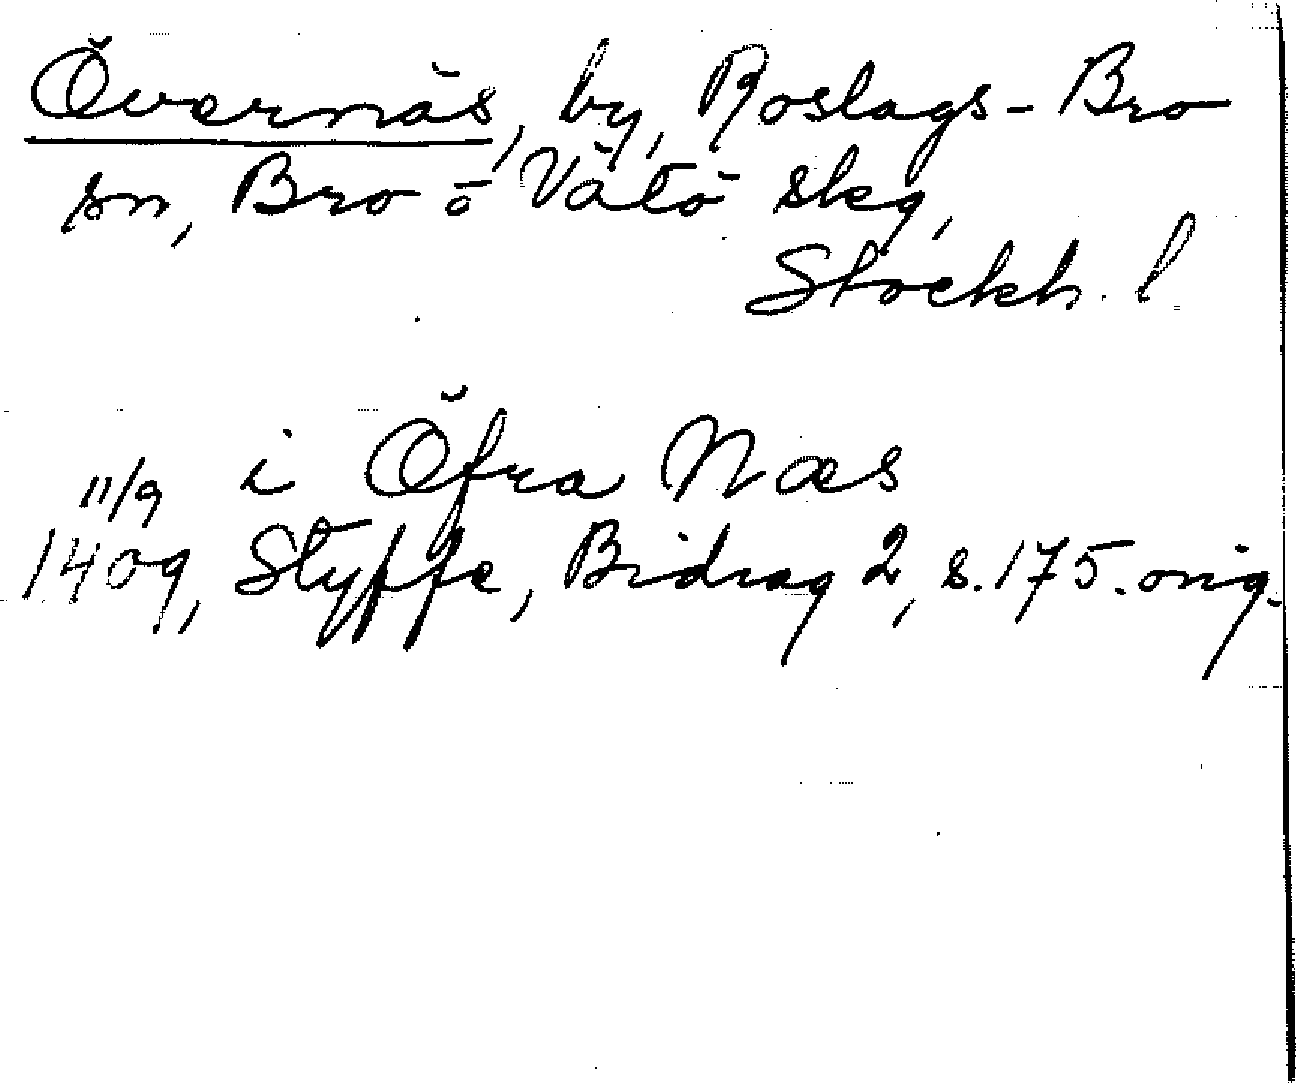 Övernäs, by, Roslags-Bro
sn, Bro o Vätö skg,
Stockh. l.
i Öfra Næs
11/9
1409, Styffe, Bidrag 2, s. 175. orig.